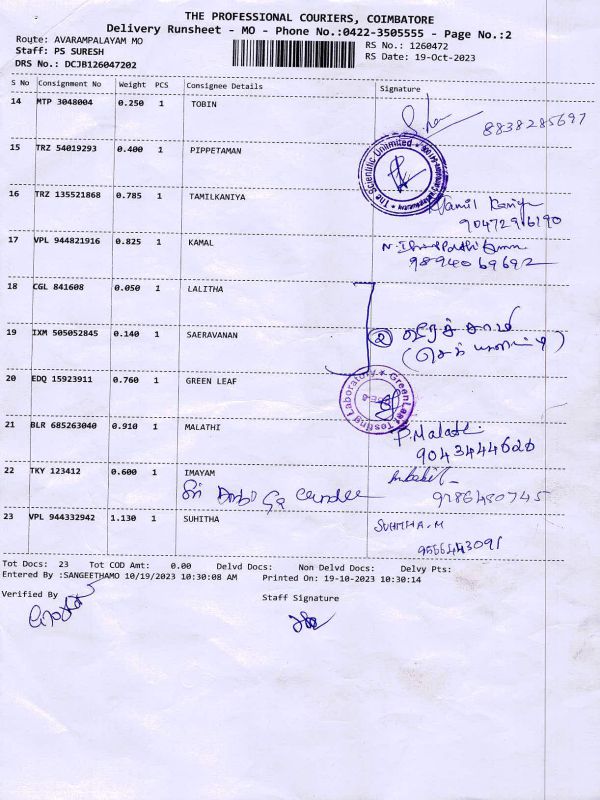 THE PROFESSIONAL COURIERS, COIMBATORE
Delivery Runsheet - MO - Phone No.:0422-3505555 - Page No.:2
Route: AVARAMPALAYAM MO
Staff: PS SURESH
DRS No.: DCJB126047202
RS No.: 1260472
RS Date: 19-Oct-2023
S No Consignment No Weight PCS Consignee Details Signature
14 MTP 3048004 0.250 1 TOBIN
8838285697
15 TRZ 54019293 0.400 1 PIPPETAMAN
The Scientific Unlimited
16 TRZ 135521868 0.785 1 TAMILKANIYA
Tamil Kaniya
9047296190
17 VPL 944821916 0.825 1 KAMAL
9894069692
18 CGL 841608 0.050 1 LALITHA
19 IXM 505052845 0.140 1 SAERAVANAN
②
20 EDQ 15923911 0.760 1 GREEN LEAF
GreenLeaf Testing Laboratory
21 BLR 685263040 0.910 1 MALATHI
P. Malathi
9043444620
22 TKY 123412 0.600 1 IMAYAM
Sri
9786480745
23 VPL 944332942 1.130 1 SUHITHA
SUHITHA.M
9566443091
Tot Docs: 23 Tot COD Amt: 0.00 Delvd Docs: Non Delvd Docs: Delvy Pts:
Entered By :SANGEETHAMO 10/19/2023 10:30:08 AM Printed On: 19-10-2023 10:30:14
Verified By
Staff Signature